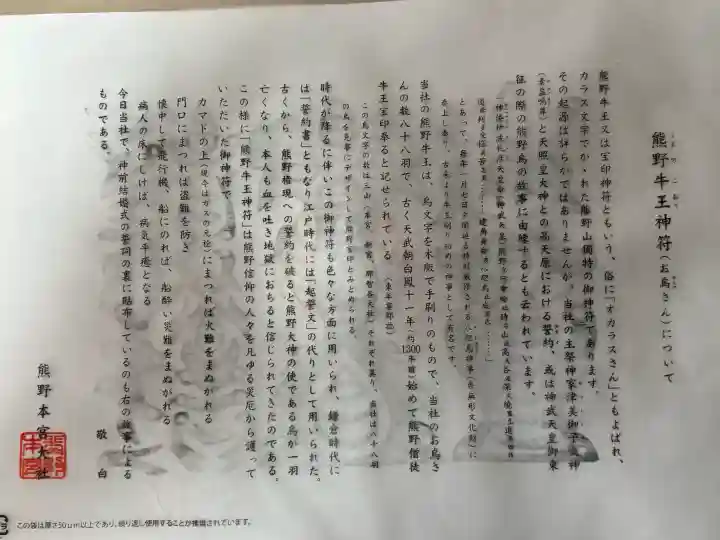 熊野牛王神符(お烏さん)について
熊野牛王又は宝印神符ともいう、俗に「オカラスさん」ともよばれ、
カラス文字でかゝれた熊野山独特の御神符であります。
その起源は詳らかではありませんが、当社の主祭神家津美御子大神
(素盞嗚尊)と天照皇大神との高天原における誓約、或は神武天皇御東
征の際の熊野烏の故事に由縁するとも云われています。
とあって、毎年一月七日夕
奉上しあり、古来より牛王刷り始めの神事として有名です。
当社の熊野牛王は、烏文字を木版で手刷りのもので、当社のお烏さ
んの数八十八羽で、古く天武朝白鳳十一年(約1300年前)始めて熊野僧徒
牛王宝印奉ると記せられている
この烏文字の数は三山(本宮、新宮、那智各大社)それぞれ異り、当社は八十八羽
の烏を見事にデザインして熊野宝印とみとめられる。
時代が降るに伴いこの御神符も色々な方面に用いられ、鎌倉時代に
は「誓約書」ともなり江戸時代には「起誓文」の代りとして用いられた。
古くから、熊野権現への誓約を破ると熊野大神の使である烏が一羽
亡くなり、本人も血を吐き地獄におちると信じられてきたのである。
この様に「熊野牛王神符」は熊野信仰の人々を凡ゆる災厄から護って
いただいた御神符で
カマドの上(現今はガスの元栓)にまつれば火難をまぬがれる
門口にまつれば盗難を防ぎ
懐中して飛行機、船にのれば、船酔い災難をまぬがれる
病人の床にしけば、病気平癒となる
今日当社で、神前結婚式の誓詞の裏に貼布しているのも右の故事による
ものである。
敬白
熊野本宮大社
この袋は厚さ50μm以上であり、繰り返し使用することが推奨されています。